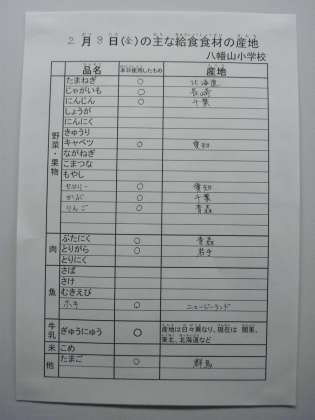 2月3日(金)の主な給食食材の産地
八幡山小学校
品名 本日使用したもの 産地
野菜・果物
たまねぎ ○ 北海道
じゃがいも ○ 長崎
にんじん ○ 千葉
しょうが
にんにく
きゅうり
キャベツ ○ 愛知
ながねぎ
こまつな
もやし
セロリー ○ 愛知
かぶ ○ 千葉
りんご ○ 青森
肉
ぶたにく ○ 青森
とりがら ○ 岩手
とりにく
魚
さば
さけ
むきえび
ホキ ○ ニュージーランド
牛乳 ぎゅうにゅう ○ 産地は日々異なり、現在は 関東、
東北、北海道など
米 こめ
他 たまご ○ 群馬